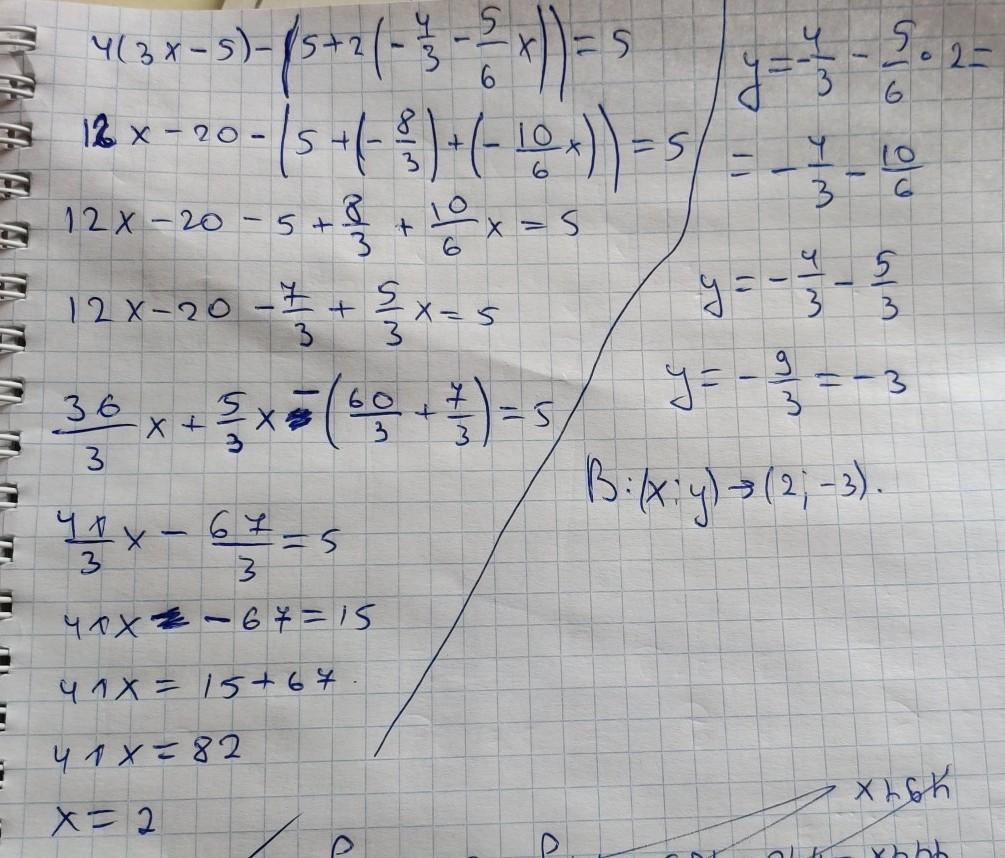 4(3x-5)-(5+2(-4/3-5/6x))=5
12x-20-(5+(-8/3)+(-10/6x))=5
12x-20-5+8/3+10/6x=5
12x-20-7/3+5/3x=5
36/3x+5/3x-(60/3+7/3)=5
41/3x-67/3=5
41x-67=15
41x=15+67.
41x=82
x=2
y=-4/3-5/6·2=
=-4/3-10/6
y=-4/3-5/3
y=-9/3=-3
В:(x;y)→(2;-3).